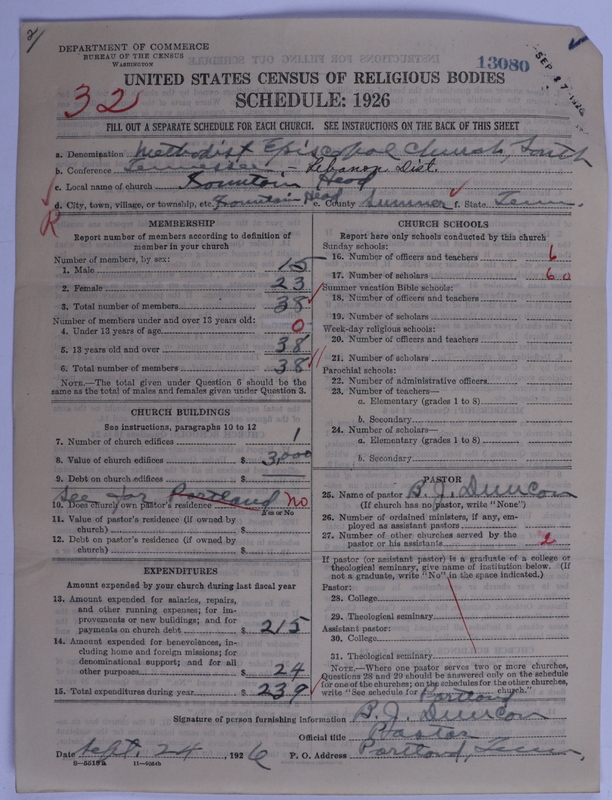 2
DEPARTMENT OF COMMERCE
BUREAU OF THE CENSUS
WASHINGTON
13080
SEP 27 1926
UNITED STATES CENSUS OF RELIGIOUS BODIES
32
SCHEDULE: 1926
FILL OUT A SEPARATE SCHEDULE FOR EACH CHURCH. SEE INSTRUCTIONS ON THE BACK OF THIS SHEET
a. Denomination Methodist Episcopal Church, South
b. Conference Tennessee - Lebanon Dist.
c. Local name of church Fountain Head
d. City, town, village, or township, etc. Fountain Head e. County Sumner f. State Tenn.
MEMBERSHIP
Report number of members according to definition of member in your church
Number of members, by sex:
1. Male 15
2. Female 23
3. Total number of members 38
Number of members under and over 13 years old:
4. Under 13 years of age 0
5. 13 years old and over 38
6. Total number of members 38
NOTE.—The total given under Question 6 should be the
same as the total of males and females given under Question 3.
CHURCH BUILDINGS
See instructions, paragraphs 10 to 12
7. Number of church edifices 1
8. Value of church edifices $ 3,000
9. Debt on church edifices $
See for Portland
10. Does church own pastor's residence no
Yes or No
11. Value of pastor's residence (if owned by
church) $
12. Debt on pastor's residence (if owned by
church) $
EXPENDITURES
Amount expended by your church during last fiscal year
13. Amount expended for salaries, repairs,
and other running expenses; for im-
provements or new buildings; and for
payments on church debt $ 215
14. Amount expended for benevolences, in-
cluding home and foreign missions; for
denominational support; and for all
other purposes $ 24
15. Total expenditures during year $ 239
CHURCH SCHOOLS
Report here only schools conducted by this church
Sunday schools:
16. Number of officers and teachers 6
17. Number of scholars 60
Summer vacation Bible schools:
18. Number of officers and teachers
19. Number of scholars
Week-day religious schools:
20. Number of officers and teachers
21. Number of scholars
Parochial schools:
22. Number of administrative officers
23. Number of teachers—
a. Elementary (grades 1 to 8)
b. Secondary
24. Number of scholars—
a. Elementary (grades 1 to 8)
b. Secondary
PASTOR
25. Name of pastor B. J. Duncan
(If church has no pastor, write "None")
26. Number of ordained ministers, if any, em-
ployed as assistant pastors
27. Number of other churches served by the
pastor or his assistants 2
If pastor (or assistant pastor) is a graduate of a college or
theological seminary, give name of institution below. (If
not a graduate, write "No" in the space indicated.)
Pastor:
28. College
29. Theological seminary
Assistant pastor:
30. College
31. Theological seminary
NOTE.—Where one pastor serves two or more churches,
Questions 28 and 29 should be answered only on the schedule
for one of the churches; on the schedules for the other churches,
write "See schedule for Portland church."
Signature of person furnishing information B. J. Duncan
Official title Pastor
Date Sept. 24, 1926 P. O. Address Portland, Tenn.